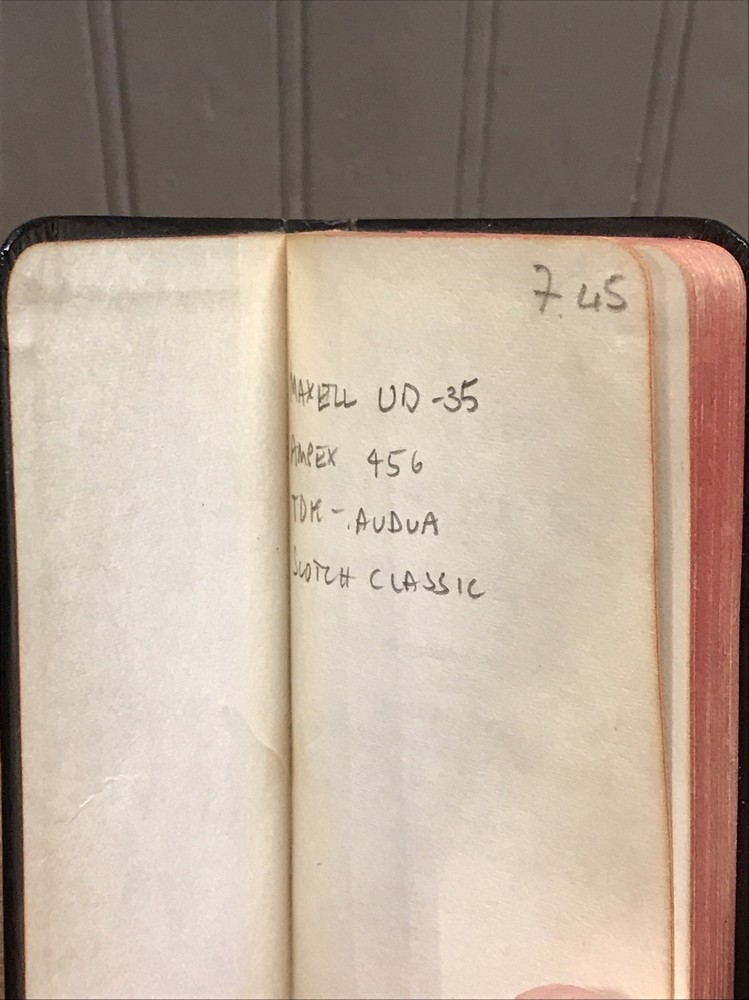 7.45
MAXELL UD-35
AMPEX 456
TDK - AUDUA
SCOTCH CLASSIC